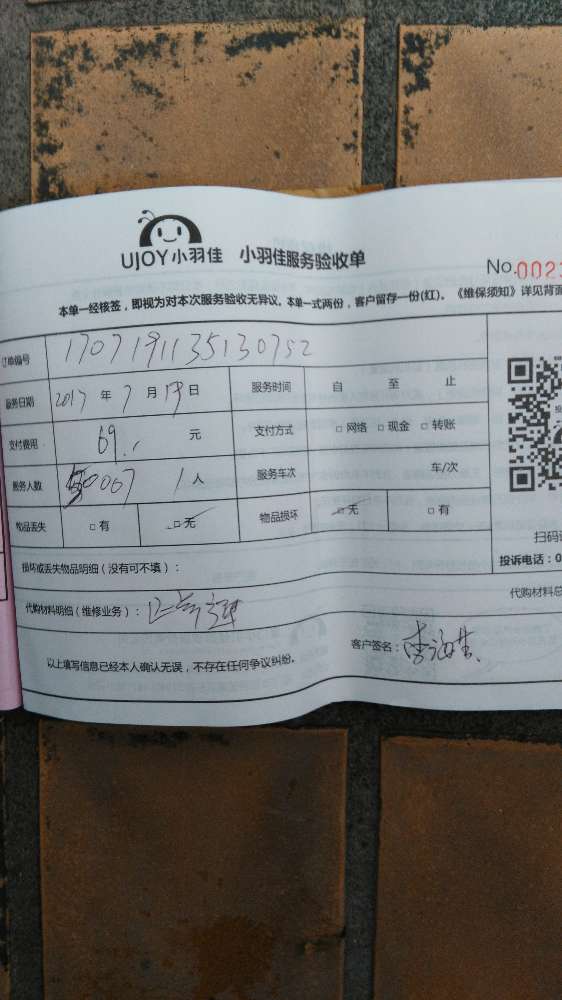 UJOY小羽佳 小羽佳服务验收单
No.002
本单一经核签，即视为对本次服务验收无异议。本单一式两份，客户留存一份(红)。《维保须知》详见背面
订单编号 1707191135130752
服务日期 2017 年 7 月 19 日 服务时间 自 至 止
支付费用 69.- 元 支付方式 □网络 □现金 □转账
服务人数 50067 1人 服务车次 车/次
物品丢失 □有 □无 物品损坏 □无 □有
损坏或丢失物品明细（没有可不填）：
扫码
投诉电话：0
代购材料明细（维修业务）：
代购材料总
以上填写信息已经本人确认无误，不存在任何争议纠纷。 客户签名：李海生